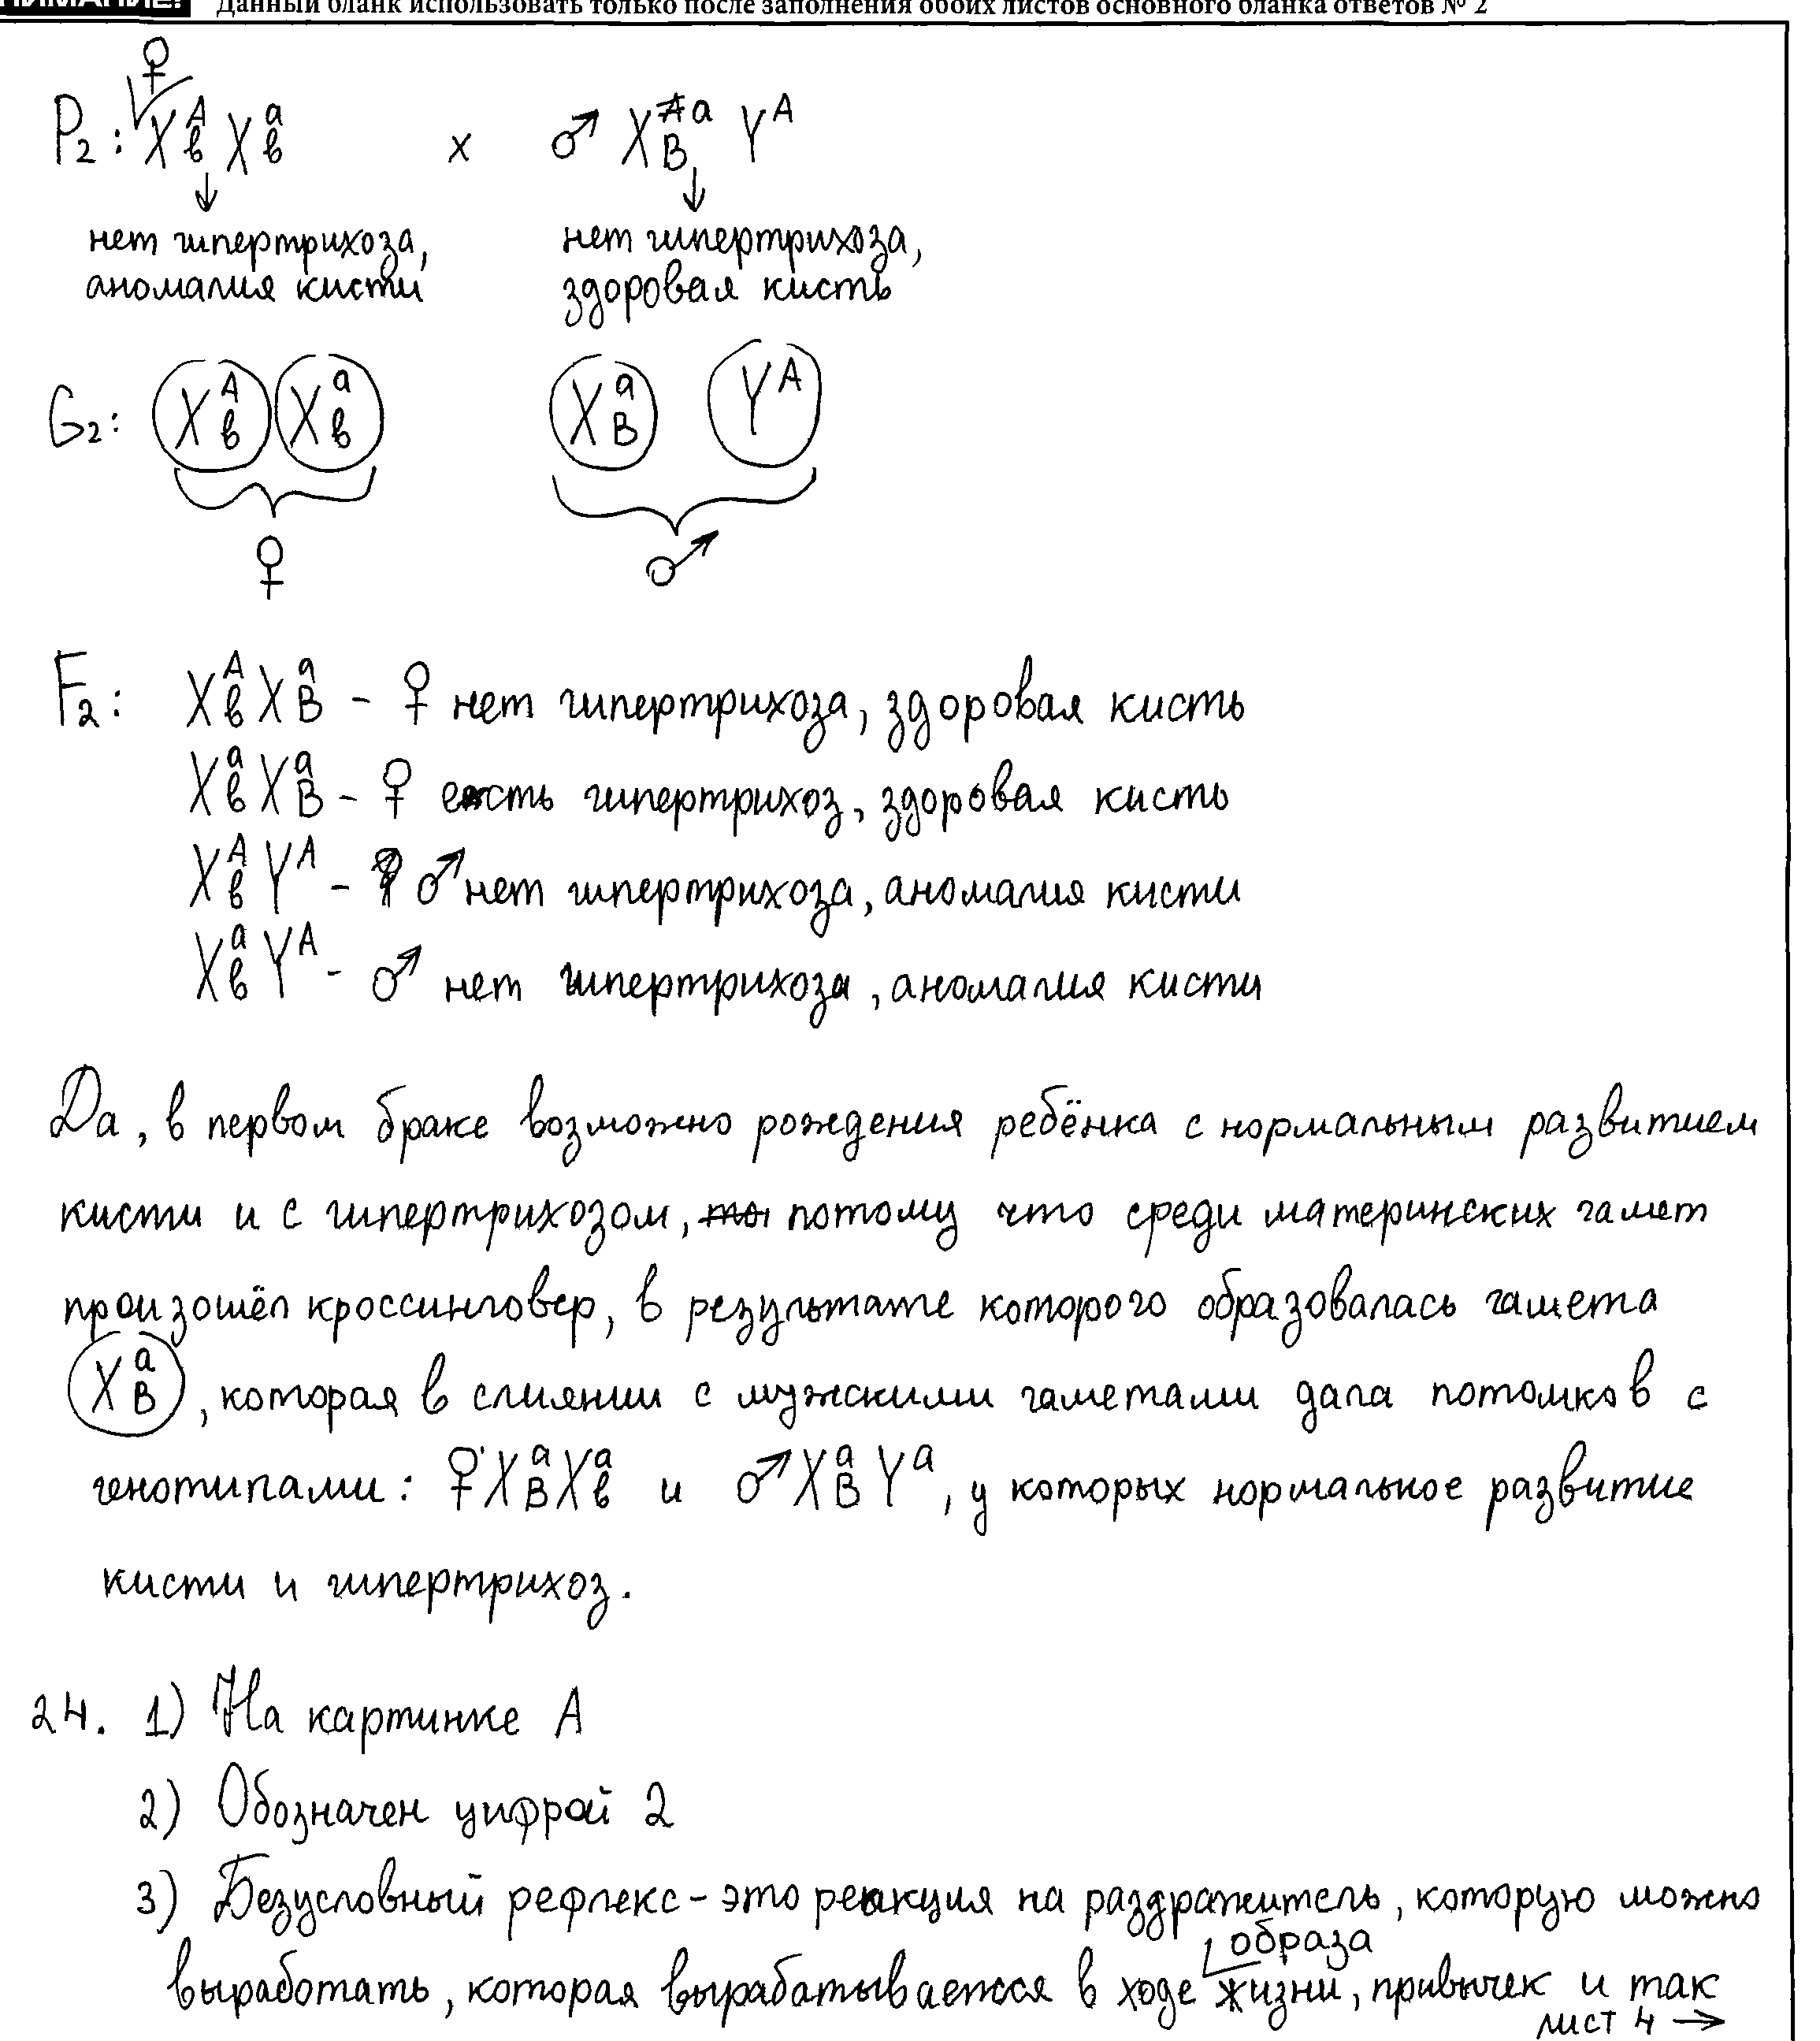 Данный бланк использовать только после заполнения обоих листов основного бланка ответов № 2
♀
P₂: XᴬвXᵃв х ♂ XᵃB Yᴬ
↓ ↓
нет гипертрихоза, нет гипертрихоза,
аномалия кисти здоровая кисть
G₂: Xᴬв Xᵃв XᵃB Yᴬ
♀ ♂
F₂: XᴬвXᵃB - ♀ нет гипертрихоза, здоровая кисть
XᵃвXᵃB - ♀ есть гипертрихоз, здоровая кисть
XᴬвYᴬ - ♂ нет гипертрихоза, аномалия кисти
XᵃвYᴬ - ♂ нет гипертрихоза, аномалия кисти
Да, в первом браке возможно рождения ребёнка с нормальным развитием
кисти и с гипертрихозом, потому что среди материнских гамет
произошёл кроссинговер, в результате которого образовалась гамета
XᵃB, которая в слиянии с мужскими гаметами дала потомков с
генотипами: ♀XᵃBXᵃв и ♂XᵃBYᵃ, у которых нормальное развитие
кисти и гипертрихоз.
24. 1) На картинке А
2) Обозначен цифрой 2
3) Безусловный рефлекс - это реакция на раздражитель, которую можно
образа
выработать, которая вырабатывается в ходе жизни, привычек и так
лист 4 →